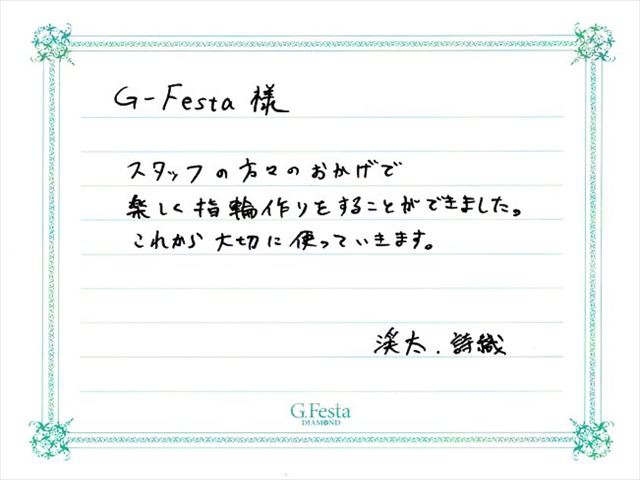 G-Festa 様
スタッフの方々のおかげで
楽しく指輪作りをすることができました。
これから大切に使っていきます。
渓太.詩織
G.Festa
DIAMOND